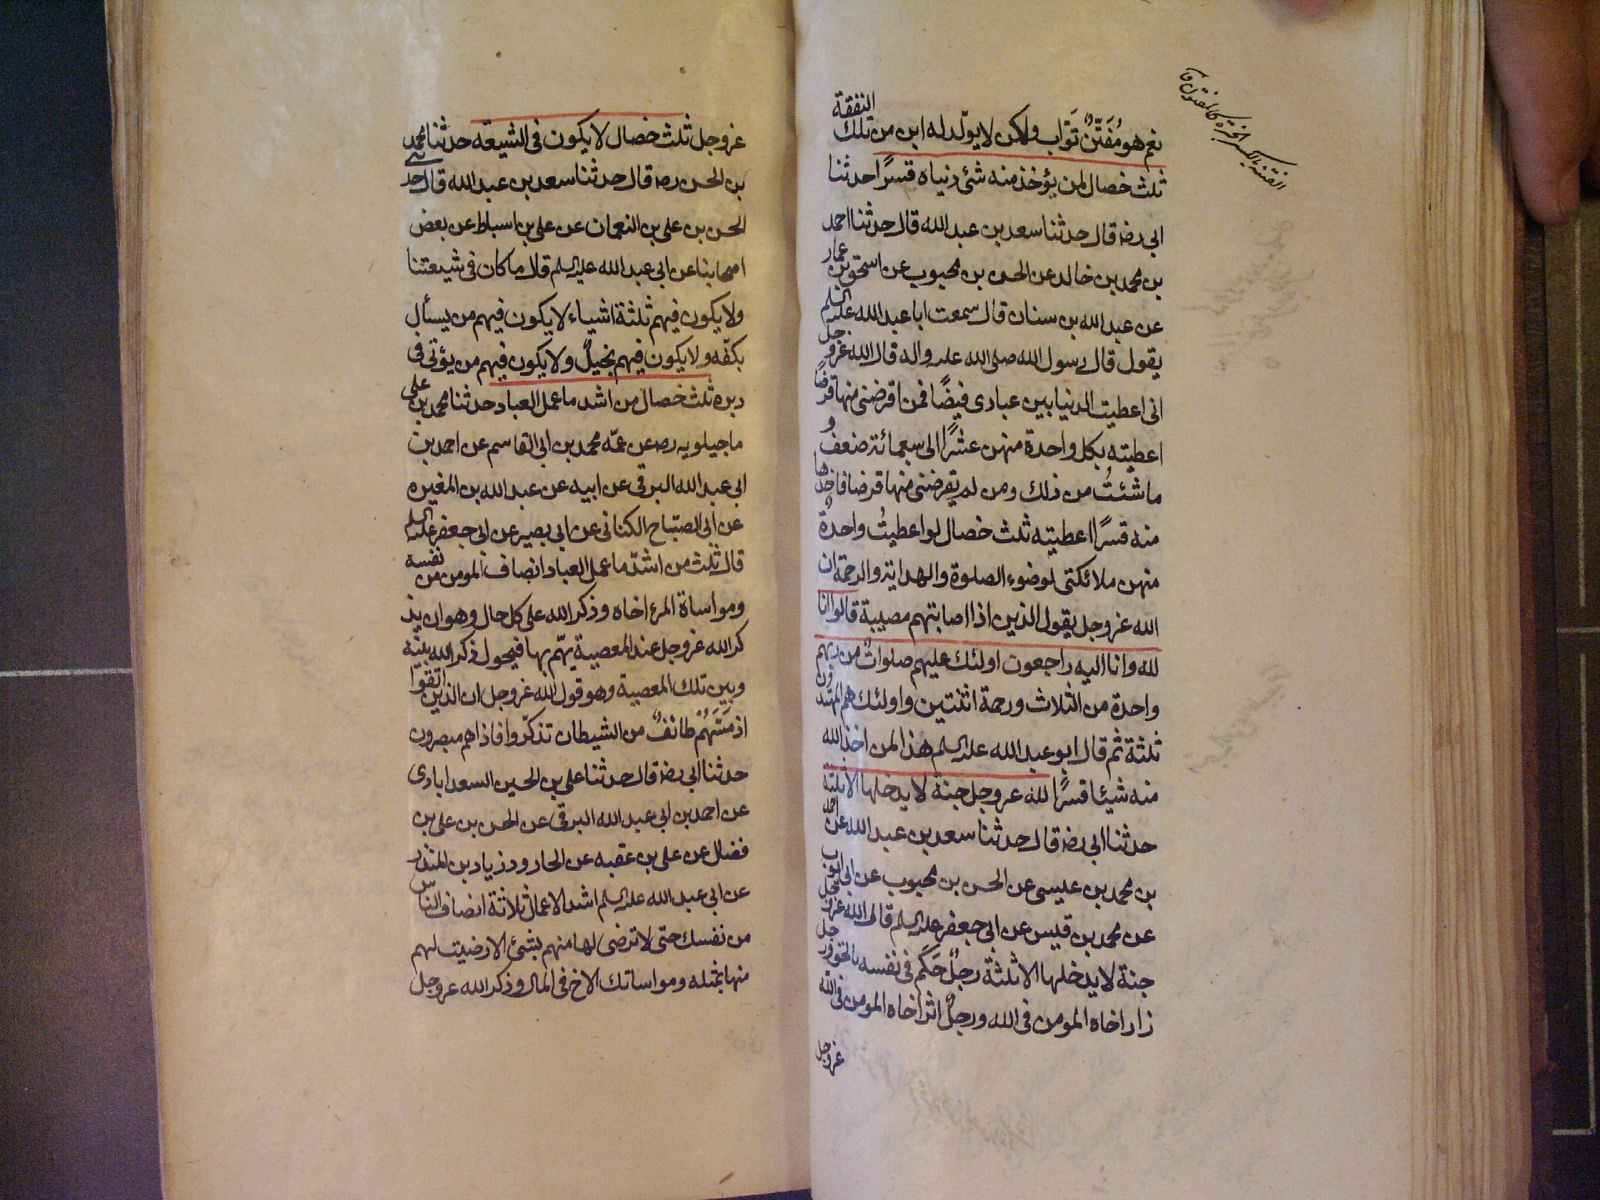 نعم هو مُفَتَّنٌ تَوّاب ولكن لا يولد له ابن من تلك النفقة
ثلث خصال لمن يؤخذ منه شئ دنياه قسرًا حدثنا
ابى رضه قال حدثنا سعد بن عبد الله قال حدثنا احمد
بن محمد بن خالد عن الحسن بن محبوب عن اسحق بن عمار
عن عبد الله بن سنان قال سمعت ابا عبد الله عليه السلم
يقول قال رسول الله صلى الله عليه واله قال الله عز وجل
انى اعطيت الدنيا بين عبادى فيضًا فمن اقرضنى منها قرضًا
اعطيته بكل واحدة منهن عشرًا الى سبعمائة ضعف و
ما شئتُ من ذلك ومن لم يقرضنى منها قرضا فاخذها
منه قسرًا اعطيته ثلث خصال لو اعطيتُ واحدةً
منهن ملائكتى لرضوا الصلوة والهداية والرحمة ان
الله عز وجل يقول الذين اذا اصابتهم مصيبة قالوا انا
لله وانا اليه راجعون اولئك عليهم صلواتٌ من ربهم
واحدة من الثلاث ورحمة اثنتين واولئك هم المهتدون
ثلثة ثم قال ابو عبد الله عليه السلم هذا لمن اخذ الله
منه شيئا قسرًا لله عز وجل جنة لا يدخلها الا ثلثة
حدثنا ابى رضه قال حدثنا سعد بن عبد الله عن احمد
بن محمد بن عيسى عن الحسن بن محبوب عن ابى ايوب
عن محمد بن قيس عن ابى جعفر عليه السلم قال لله عز وجل
جنة لا يدخلها الا ثلثة رجلٌ حَكَم فى نفسه بالحق ورجل
زار اخاه المومن فى الله ورجلٌ اثر اخاه المومن فى الله
عز وجل
عز وجل ثلث خصال لا يكون فى الشيعة حدثنا محمد
بن الحسن رضه قال حدثنا سعد بن عبد الله قال حدثنى
الحسن بن على بن النعمان عن على بن اسباط عن بعض
اصحابنا عن ابى عبد الله عليه السلم قال ما كان فى شيعتنا
ولا يكون فيهم ثلثة اشياء لا يكون فيهم من يسأل
بكفّه ولا يكون فيهم بخيلٌ ولا يكون فيهم من يؤتى فى
دبره ثلث خصال من اشد ما عمل العباد حدثنا محمد بن على
ماجيلويه رضه عن عمّه محمد بن ابى القاسم عن احمد بن
ابى عبد الله البرقى عن ابيه عن عبد الله بن المغيره
عن ابى الصباح الكنانى عن ابى بصير عن ابى جعفر عليه السلم
قال ثلث من اشدّ ما عمل العباد انصاف المومن من نفسه
ومواساة المرء اخاه وذكر الله على كل حال وهو ان يذ
كر الله عز وجل عند المعصية يهّم بها فيحول ذكر الله بينه
وبين تلك المعصية وهو قول الله عز وجل ان الذين اتقوا
اذا مَسَّهُمْ طائفٌ من الشيطان تذكّروا فاذا هم مبصرون
حدثنا ابى رضه قال حدثنا على بن الحسين السعدابادى
عن احمد بن ابى عبد الله البرقى عن الحسن بن على بن
فضال عن على بن عقبه عن الجارود زياد بن المنذر
عن ابى عبد الله عليه السلم اشد الاعمال ثلاثة انصاف الناس
من نفسك حتى لا ترضى لها منهم بشئ الا رضيت لهم
منها بمثله ومواساتك الاخ فى المال وذكر الله عز وجل